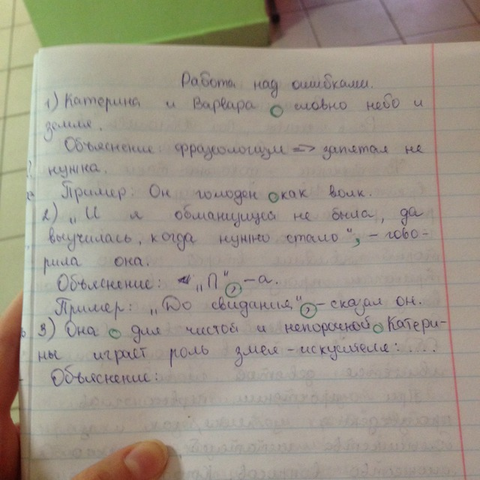 Работа над ошибками.
1) Катерина и Варвара словно небо и
земля.
Объяснение: фразеологизм => запятая не
нужна.
Пример: Он голоден как волк.
2) „И я обманщица не была, да
выучилась, когда нужно стало", - гово-
рила она.
Объяснение: „П", - а.
Пример: „До свидания", - сказал он.
3) Она для чистой и непорочной Катери-
ны играет роль змея - искусителя: ...
Объяснение: